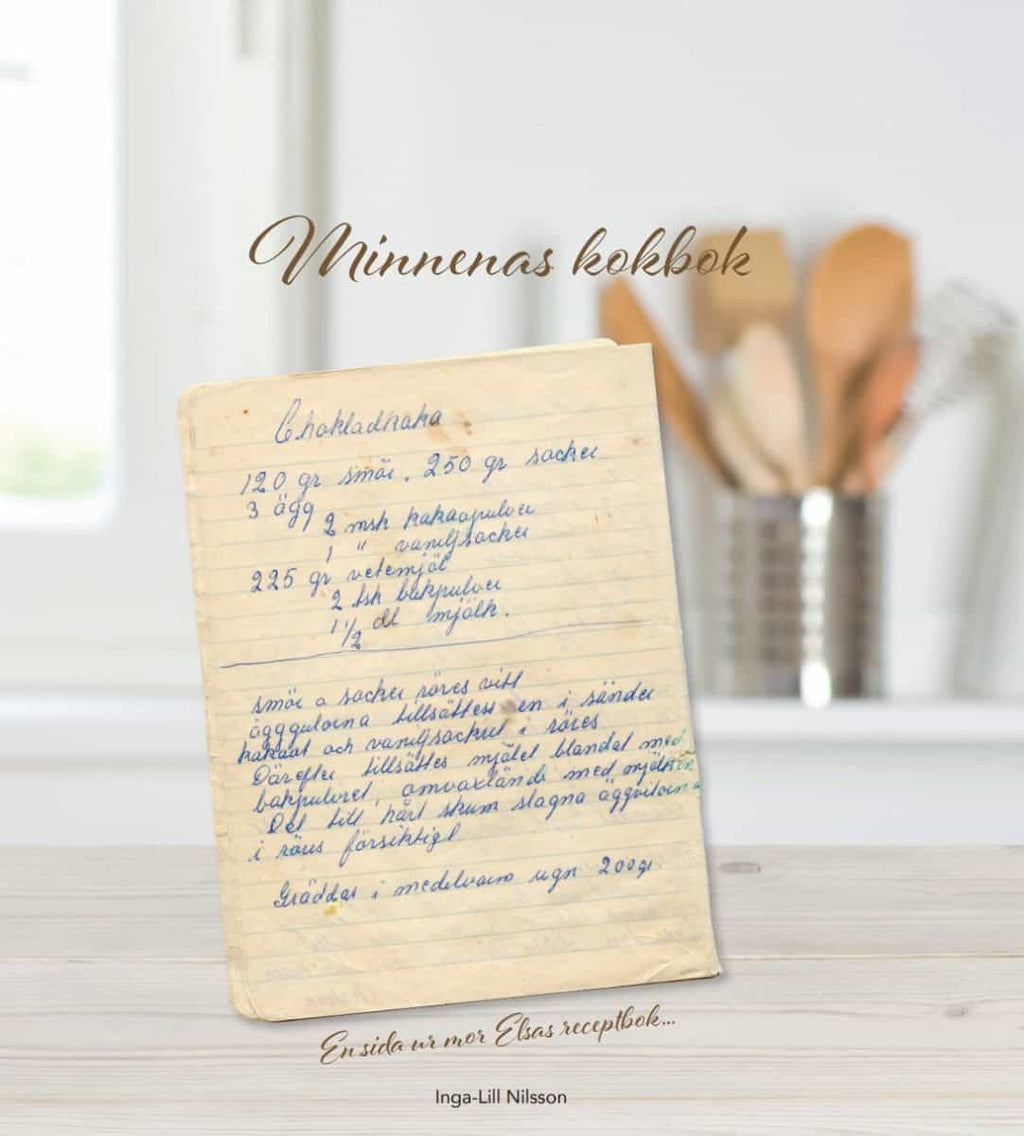 Minnenas kokbok
Chokladkaka
120 gr smör. 250 gr socker
3 ägg
2 msk kakaopulver
1 " vaniljsocker
225 gr vetemjöl
2 tsk bakpulver
1 1/2 dl mjölk.
smör o socker röres vitt
äggguloina tillsättest en i sänder
kakaat och vaniljsockret i röres
Därefter tillsättes mjölet blandat med
bakpulvret, omvaxlände med mjölken
Det till hårt skum slagna äggvitorna
i röres försiktigt
Gräddas i medelvarm ugn 200gr.
En sida ur mor Elsas receptbok...
Inga-Lill Nilsson